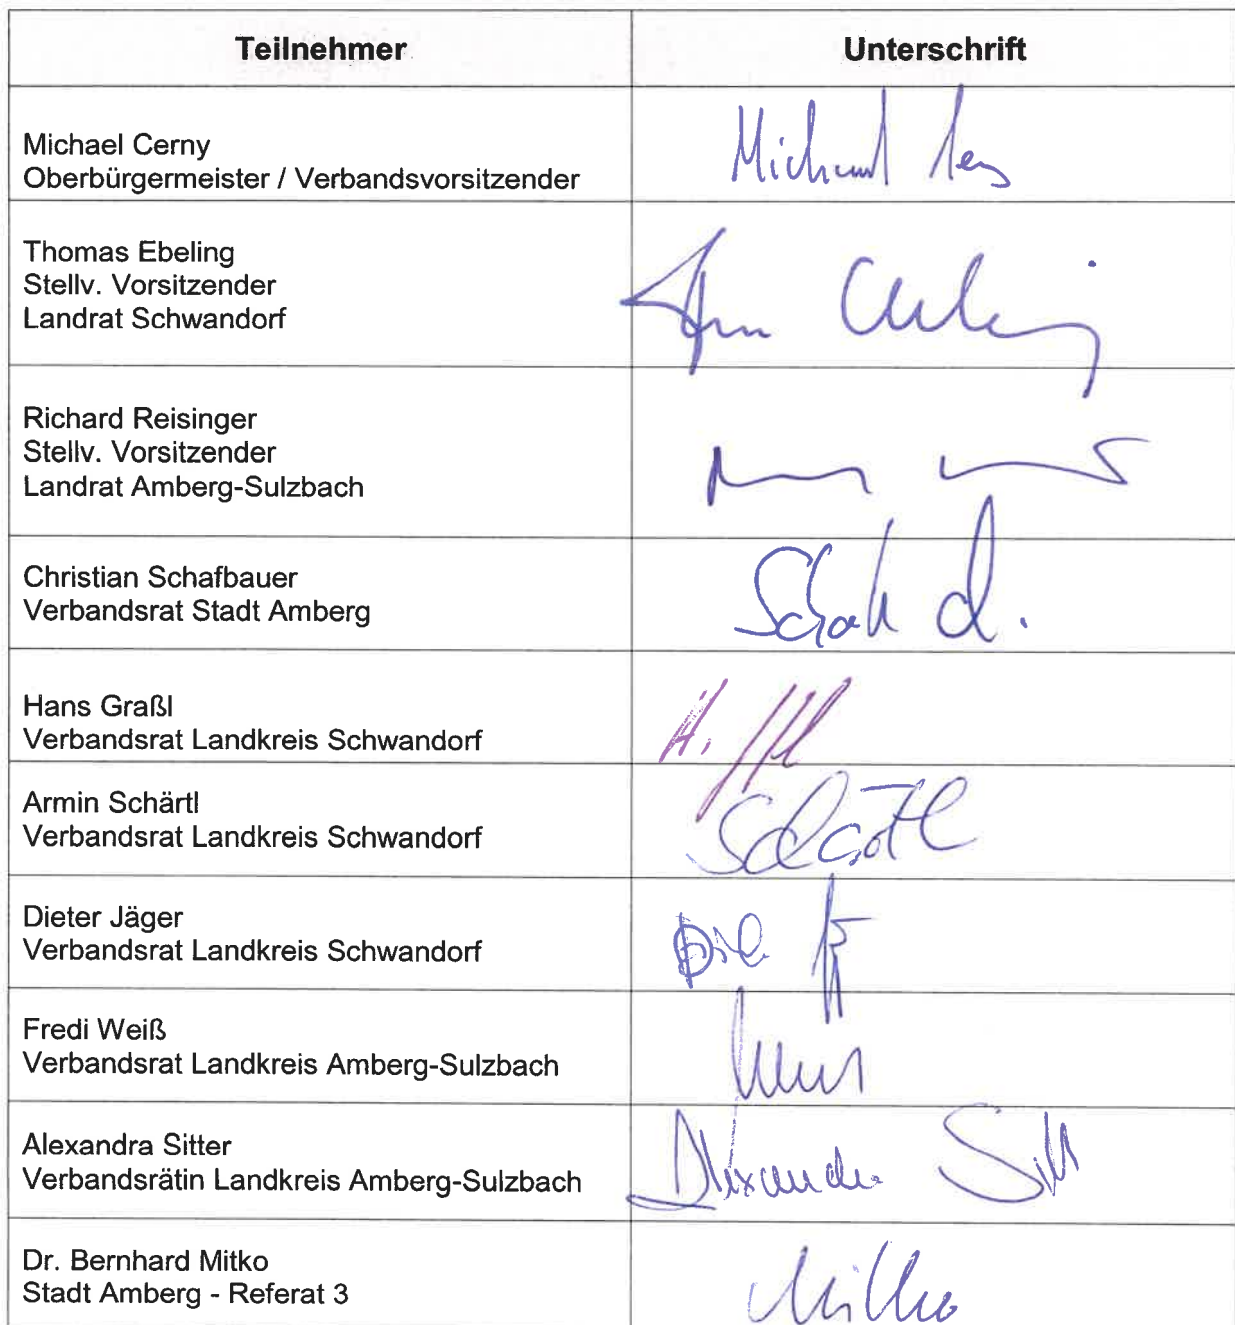 Teilnehmer Unterschrift
Michael Cerny
Oberbürgermeister / Verbandsvorsitzender
Michael
Thomas Ebeling
Stellv. Vorsitzender
Landrat Schwandorf
Richard Reisinger
Stellv. Vorsitzender
Landrat Amberg-Sulzbach
Christian Schafbauer
Verbandsrat Stadt Amberg
Hans Graßl
Verbandsrat Landkreis Schwandorf
H.
Armin Schärtl
Verbandsrat Landkreis Schwandorf
Schärtl
Dieter Jäger
Verbandsrat Landkreis Schwandorf
Fredi Weiß
Verbandsrat Landkreis Amberg-Sulzbach
Alexandra Sitter
Verbandsrätin Landkreis Amberg-Sulzbach
Alexandra
Dr. Bernhard Mitko
Stadt Amberg - Referat 3
Mitko